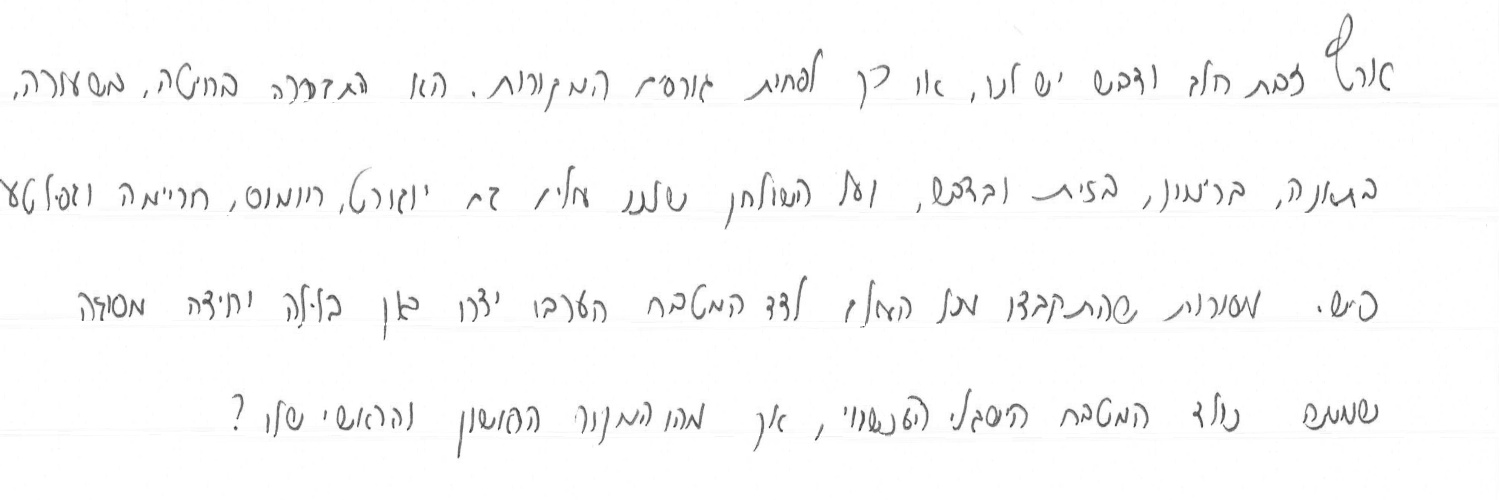 ארץ זבת חלב ודבש יש לנו, או כך לפחות גורסים המקורות. היא התברכה בחיטה, בשעורה,
בתאנה, ברימון, בזית ובדבש, ועל השולחן שלנו עולים גם יוגורט, חומוס, חריימה וגפילטע
פיש. מסורות שהתקבצו מכל העולם לצד המטבח הערבי יצרו כאן בלילה יחידה מסוגה
שממנה נולד המטבח הישראלי העכשווי, אך מהו המקור הראשון והראשי שלו?